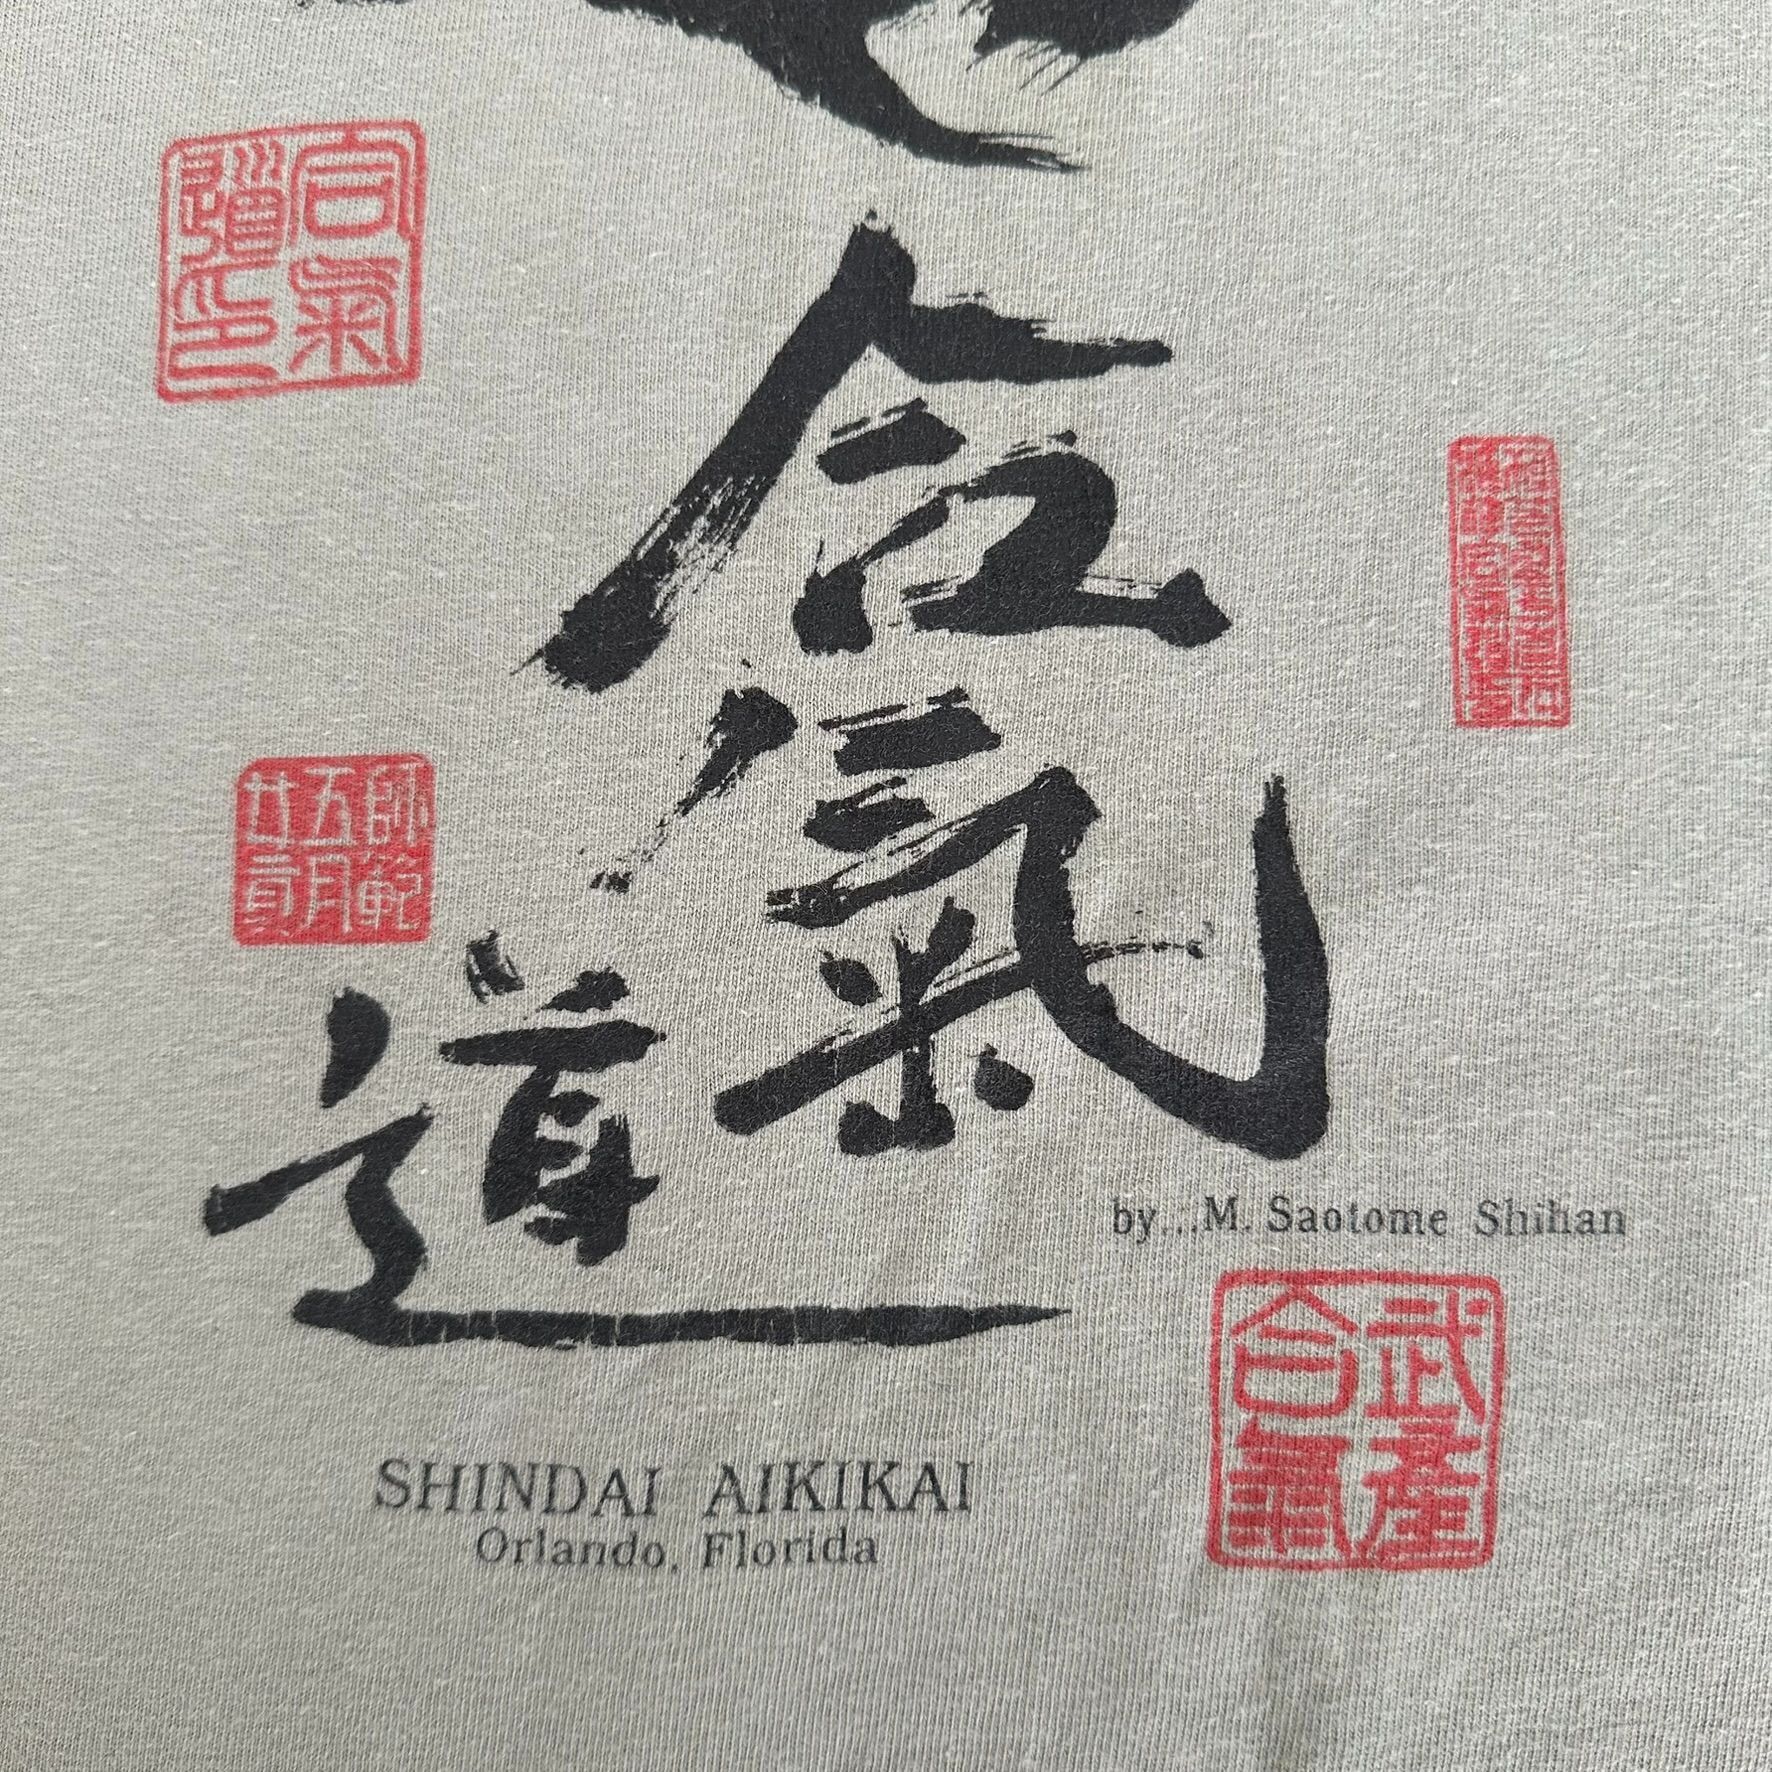 合氣道印
合氣道
師範
五月
by...M. Saotome Shihan
武産合氣
SHINDAI AIKIKAI
Orlando, Florida